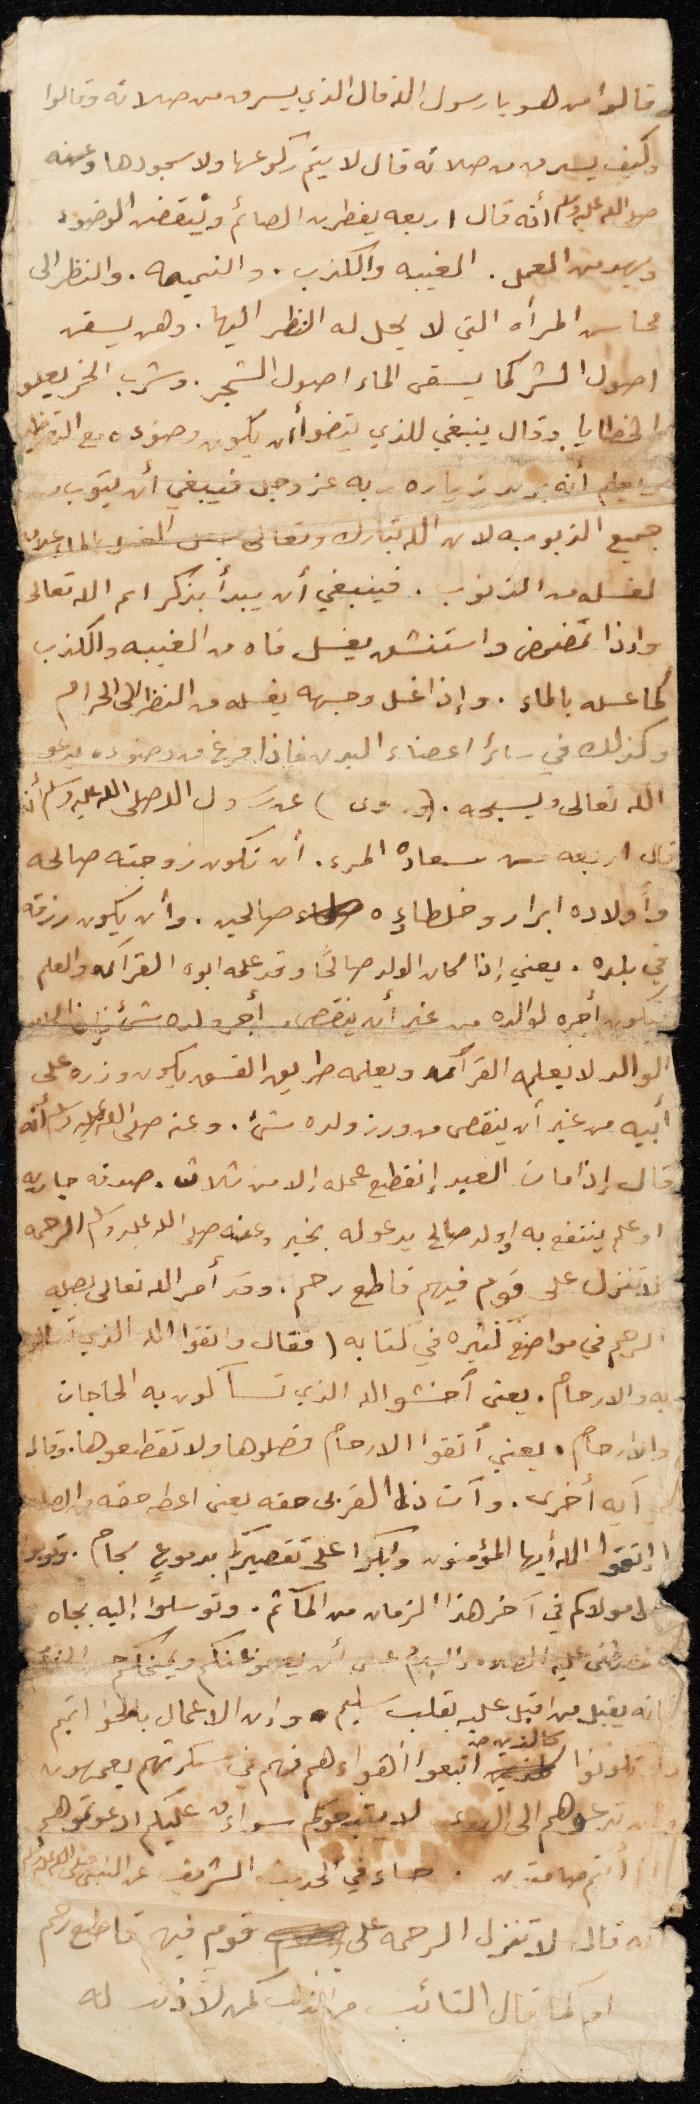 قالوا من هو يا رسول الله قال الذي يسرق من صلاته وقالوا
وكيف يسرق من صلاته قال لا يتم ركوعها ولا سجودها وعنه
صلى الله عليه وسلم أنه قال اربعه يفطرن الصائم وينقضن الوضوء
ويهدمن العمل . الغيبه والكذب . والنميمه . والنظر الى
محاسن المرأه التي لا يحل له النظر اليها . وهن يسقن
اصول الشر كما يسقى الماء اصول الشجر . وشرب الخمر يعلو
الخطايا وقال ينبغي للذي يتوضوأ أن يكون وضوءه مع
ويعلم أنه يريد زياره ربه عز وجل فيبغي أن يتوب
جميع الذنوب لان الله تبارك وتعالى جعل الغسل بالماء
لغسله من الذنوب . فينبغي أن يبدأ بذكر اسم الله تعالى
واذا تمضمض واستنشق يغسل فاه من الغيبه والكذب
كما غسله بالماء . وإذا غسل وجهه يغسله من النظر إلى الحرام
وكذلك في سائر اعضاء البدن فاذا فرغ من وضوءه يدعو
الله تعالى ويسبحه . (وروى) عن رسول الله صلى الله عليه وسلم أنه
قال اربعه من سعادة المرء . أن تكون زوجته صالحه
وأولاده ابرار وخلطاؤه صالحين . وأن يكون رزقه
في بلده . يعني إذا كان الولد صالحًا وقد علمه ابوه القرآن والعلم
فيكون أجره لوالده من غير أن ينقص من أجر ولده شئ
الوالد لا يعلمه القرآن ويعلمه طريق الفسق يكون وزره على
أبيه من غير أن ينقص من وزر ولده شئ . وعنه صلى الله عليه وسلم أنه
قال إذا مات العبد إنقطع عمله إلا من ثلاث . صدقه جاريه
او علم ينتفع به او ولد صالح يدعو له بخير وعنه صلى الله عليه وسلم الرحمه
لا تنزل على قوم فيهم قاطع رحم . وقد أمر الله تعالى بصله
الرحم في مواضع كثيره في كتابه (فقال واتقوا الله الذي
به والارحام . يعني أخشوا الله الذي تسآلون به الحاجات
والارحام . يعني أتقوا الارحام فصلوها ولا تقطعوها . وقال
آيه أخرى . وآت ذا القربى حقه يعني اعطه حقه من
إتقوا الله أيها المؤمنون وابكوا على تقصيركم بدموعٍ سجام . وتوبوا
الى مولاكم في آخر هذا الزمان من المآثم . وتوسلوا إليه بجاه
عليه الصلاه والسلام عسى أن يعفو عنكم ويمنحكم
فانه يقبل من اقبل عليه بقلب سليم . وان الاعمال بالخواتيم
ولا تكونوا كالذين اتبعوا أهواءهم فهم في سكرتهم يعمهون
وان تدعوهم الى الهدى لا يتبعوكم سواءٌ عليكم ادعوتموهم
ام أنتم صامتون . جاء في الحديث الشريف عن النبي صلى الله عليه وسلم
أنه قال لا تنزل الرحمه على قوم فيهم قاطع رحم
او كما قال التائب من الذنب كمن لا ذنب له